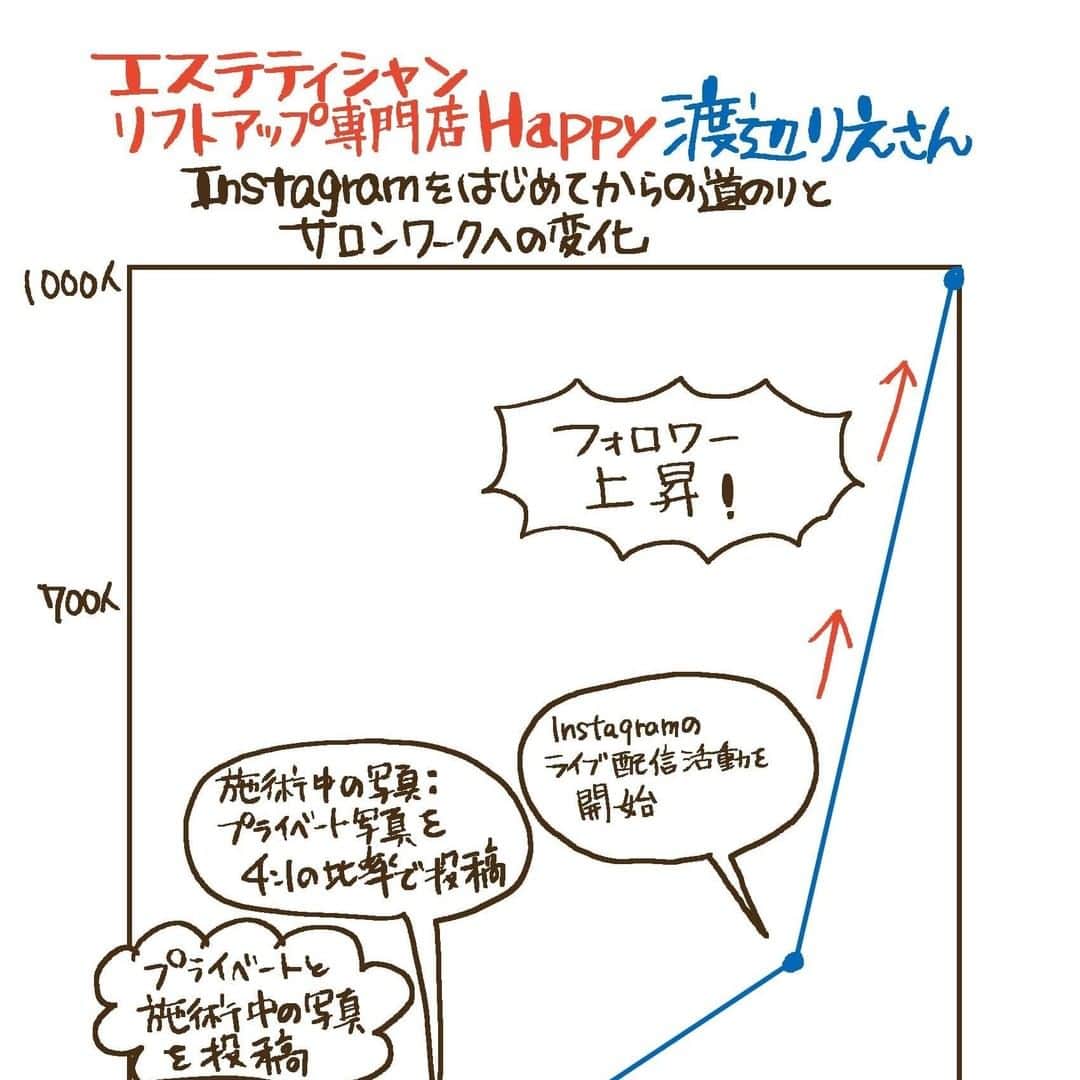 エステティシャン
リフトアップ専門店Happy 渡辺りえさん
Instagramをはじめてからの道のりと
サロンワークへの変化
1000人
フォロワー
上昇!
700人
Instagramの
ライブ配信活動を
開始
施術中の写真:
プライベート写真を
4:1の比率で投稿
プライベートと
施術中の写真
を投稿